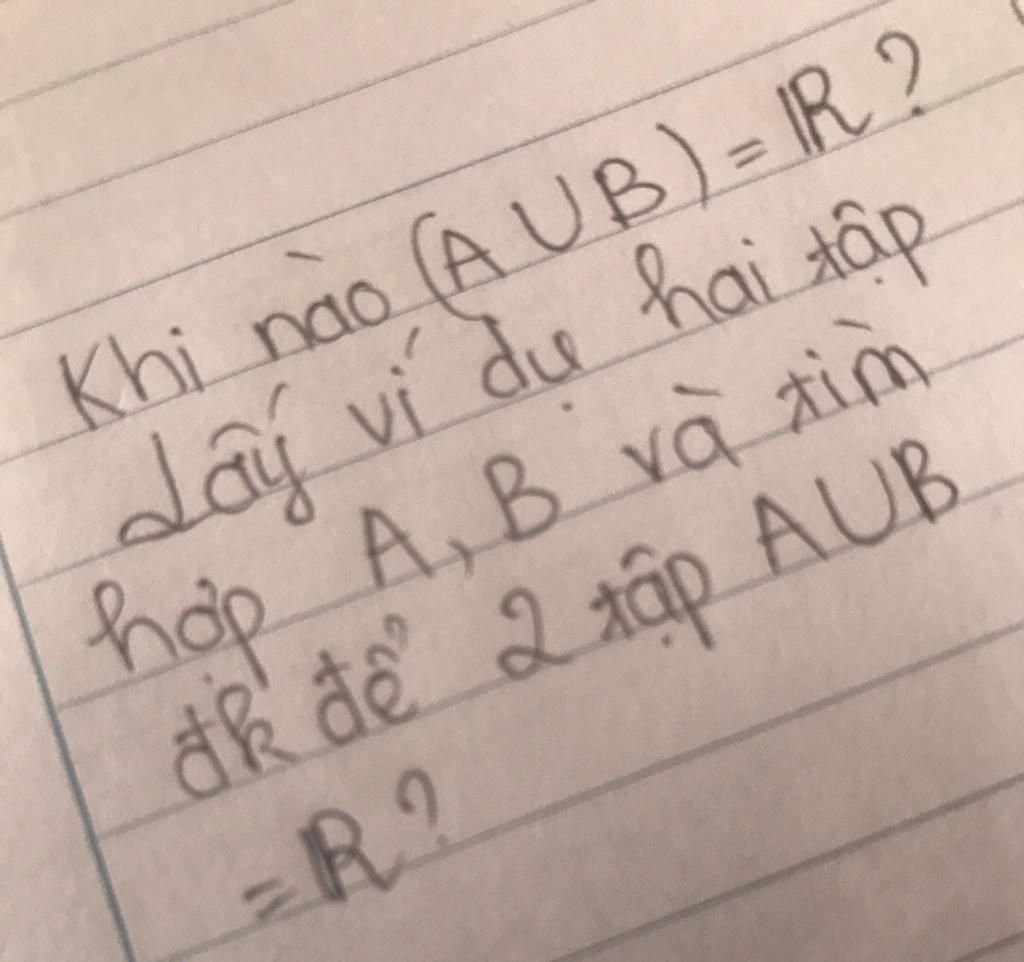 Khi nào (A ∪ B) = ℝ ?
Lấy ví dụ hai tập
hợp A, B và tìm
đk để 2 tập A ∪ B
= ℝ ?